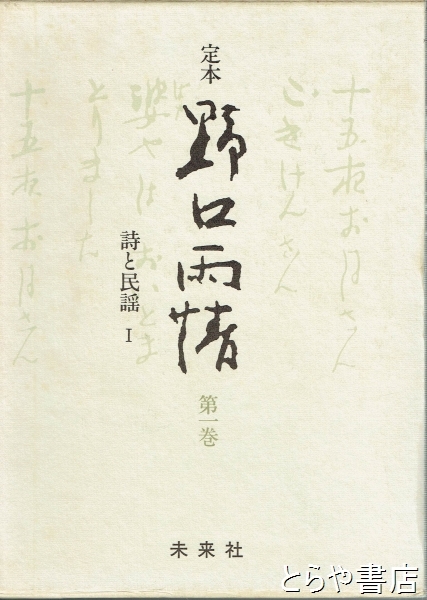 定本
野口雨情
第一巻
詩と民謡 Ⅰ
十五夜お月さん
ごきげんさん
婆やは おいとま
とりました
十五夜お月さん
未来社
とらや書店